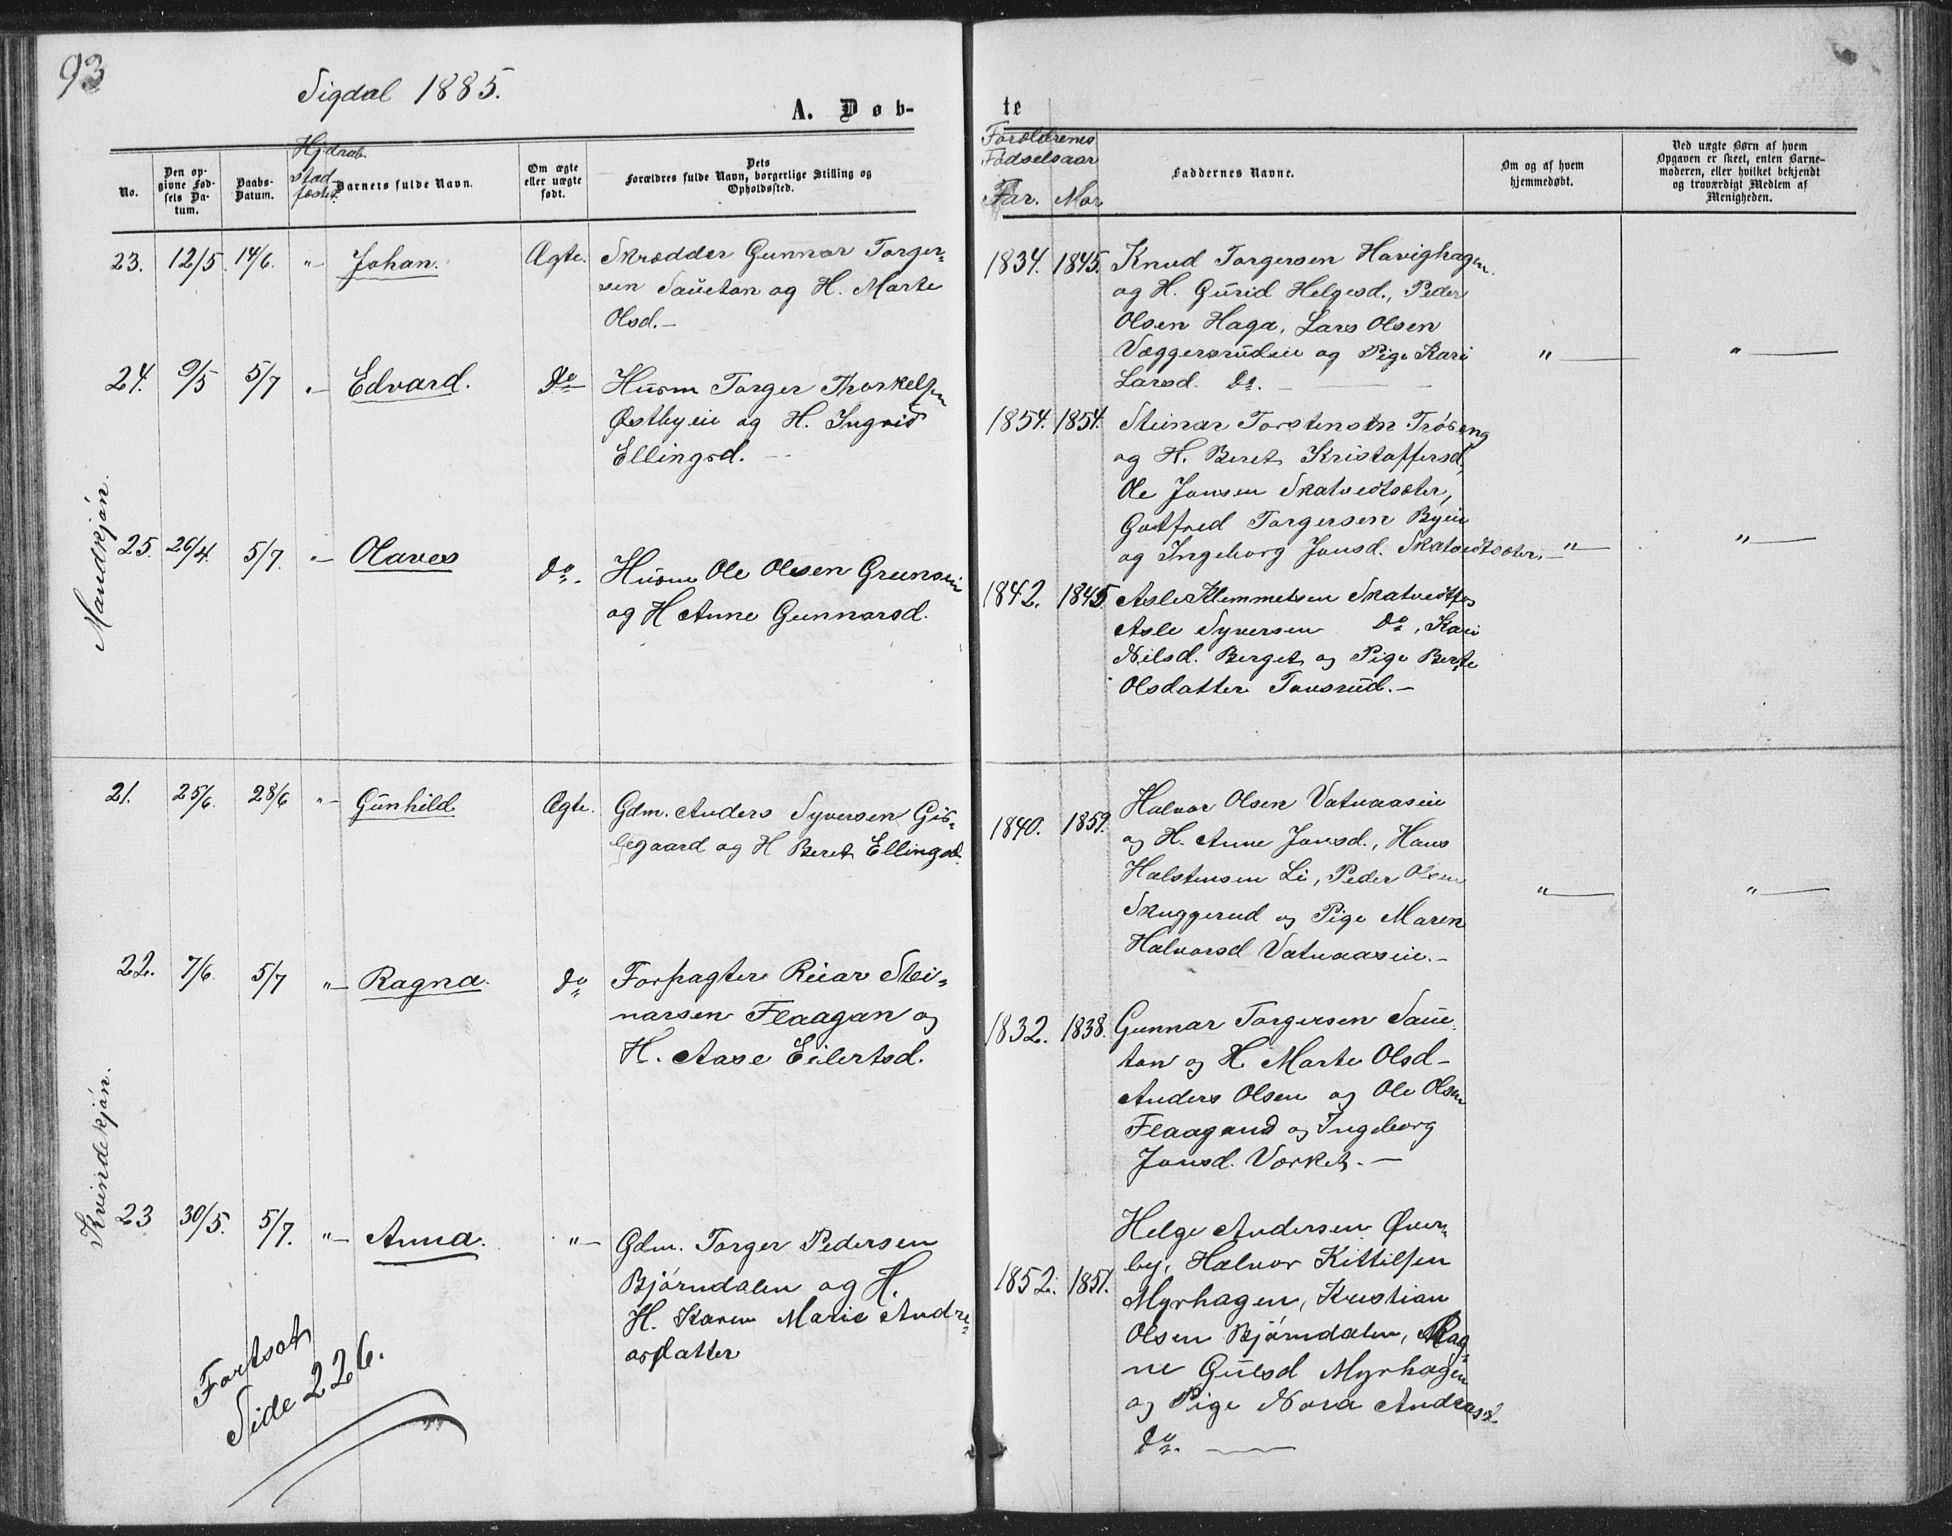 93
Sigdal 1885.
A. Døb-
te
No.
Den op-
givne Fød-
sels Da-
tum.
Daabs-
Datum.
Hjdaab
stad-
fæstet.
Barnets fulde Navn.
Om ægte
eller uægte
født.
Dets
Forældres fulde Navn, borgerlige Stilling og
Opholdssted.
Forældrenes
Fødselsaar
Far. Mor
Faddernes Navne.
Om og af hvem
hjemmedøbt.
Ved uægte Børn af hvem
Opgaven er skeet, enten Barne-
moderen, eller hvilket bekjendt
og troværdigt Medlem af
Menigheden.
Mandkjøn.
23. 12/5 14/6. "- Johan. Ægte. Skrædder Gunnar Torger-
sen Sauetan og H. Marte
Olsd.-
1834. 1845. Knud Torgersen Havighagen
og H. Gurid Helgesd., Peder
Olsen Haga, Lars Olsen
Væggersrudeie og Pige Kari
Larsd. Do. -
"— "—
24. 9/5 5/7 "- Edvard. Do Husm Torger Thorkelsen
Østbyeie og H. Ingrid
Ellingsd. -
1854. 1854. Steinar Torstensen Trøseng
og H. Beret Kristoffersd,
Ole Jonsen Skatvedtsæter,
Gotfred Torgersen Byeie
og Ingeborg Jonsd. Skatvedtsæter.
"— "—
25. 26/4. 5/7. "- Olaves Do. Husm Ole Olsen Grunseie
og H Anne Gunnarsd.
1842. 1845 Asle Klemmetsen
Asle Syversen Do, Kari
Nilsd. Berget og Pige Berte
Olsdatter Tovsrud.-
Kvindekjøn.
21. 25/6. 28/6 "- Gunhild Ægte. Gdm. Anders Syversen Gis-
legaard og H Beret Ellingsd.
1840. 1859. Halvor Olsen Vatnaaseie
og H. Anne Jonsd., Hans
Halstensen Li, Peder Olsen
Skuggerud og Pige Maren
Halvorsd Vatnaaseie.-
"— "—
22. 7/6. 5/7 "- Ragna. Do Forpagter Reiar Stei-
narsen Flaagan og
H. Aase Eilertsd.
1832. 1838. Gunnar Torgersen Saue-
tan og H Marte Olsd-
Anders Olsen og Ole Olsen
Flaagand og Ingeborg
Jonsd. Værket. -
23 30/5. 5/7. "- Anna. "- Gdm. Torger Pedersen
Bjørndalen og H.
H. Karen Marie Andre-
asdatter
1852. 1857. Helge Andersen Øver-
by, Halvor Kittilsen
Myrhagen, Kristian
Olsen Bjørndalen, Rag-
ne Gulsd Myrhagen
og Pige Nora Andreasd.
Do. —
Fortsat
Side 226.